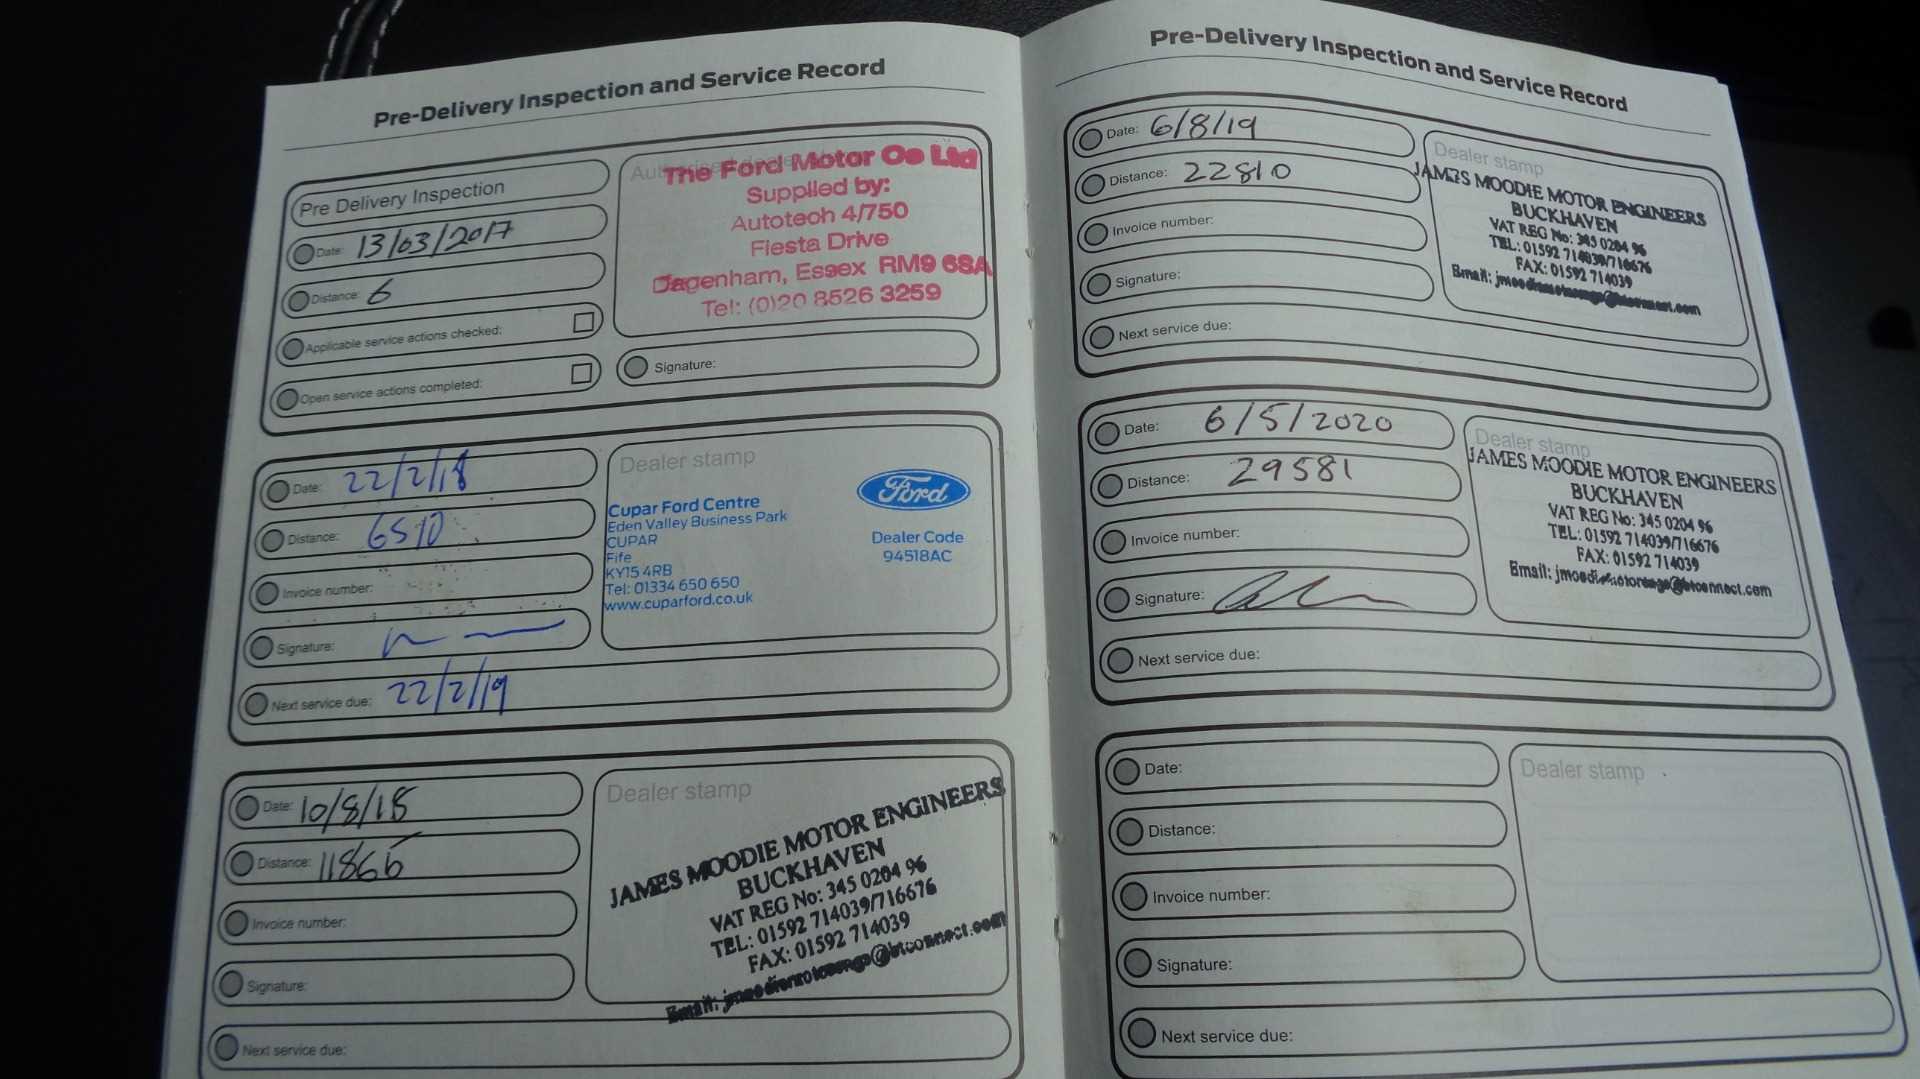 Pre-Delivery Inspection and Service Record
Pre Delivery Inspection
Date: 13/03/2017
Distance: 6
Applicable service actions checked:
Open service actions completed:
The Ford Motor Co Ltd
Supplied by:
Autotech 4/750
Fiesta Drive
Dagenham, Essex RM9 6SA
Tel: (0)20 8526 3259
Signature:
Date: 22/2/18
Distance: 6510
Invoice number:
Signature:
Next service due: 22/2/19
Dealer stamp
Cupar Ford Centre
Eden Valley Business Park
CUPAR
Fife
KY15 4RB
Tel: 01334 650 650
www.cuparford.co.uk
Ford
Dealer Code
94518AC
Date: 10/8/18
Distance: 11866
Invoice number:
Signature:
Next service due:
Dealer stamp
JAMES MOODIE MOTOR ENGINEERS
BUCKHAVEN
VAT REG No: 345 0204 96
TEL: 01592 714039/716676
FAX: 01592 714039
Email:
Pre-Delivery Inspection and Service Record
Date: 6/8/19
Distance: 22810
Invoice number:
Signature:
Next service due:
Dealer stamp
JAMES MOODIE MOTOR ENGINEERS
BUCKHAVEN
VAT REG No: 345 0204 96
TEL: 01592 714039/716676
FAX: 01592 714039
Email:
Date: 6/5/2020
Distance: 29581
Invoice number:
Signature:
Next service due:
Dealer stamp
JAMES MOODIE MOTOR ENGINEERS
BUCKHAVEN
VAT REG No: 345 0204 96
TEL: 01592 714039/716676
FAX: 01592 714039
Email:
Date:
Distance:
Invoice number:
Signature:
Next service due:
Dealer stamp